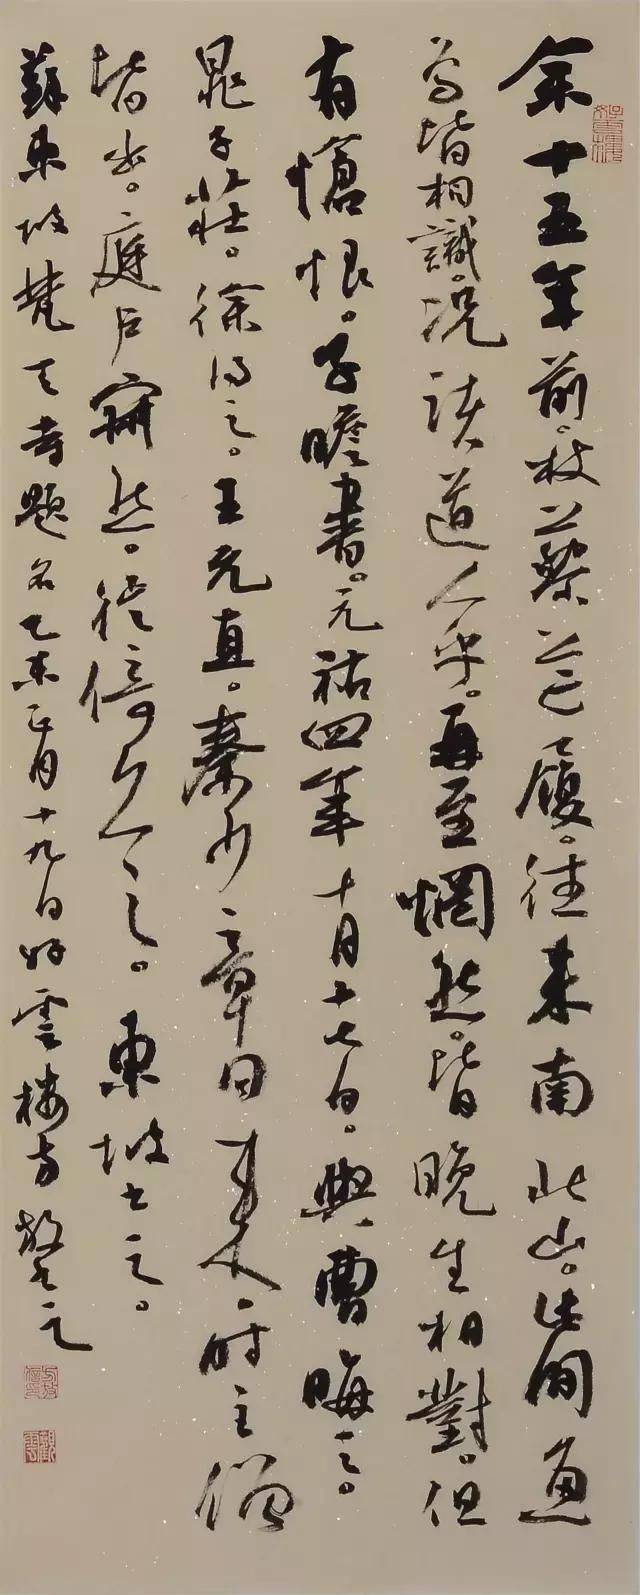 余十五年前。杖藜芒履。往來南北山。此間魚
鳥皆相識。况諸道人乎。再至惘然。皆晚生相對。但
有愴恨。子瞻書。元祐四年十月十七日。與曹晦之。
晁子莊。徐得之。王元直。秦少章同來。時主僧
皆出。庭户寂然。徙倚久之。東坡書之。
蘇東坡梵天寺題名乙未正月十九日好雲樓方